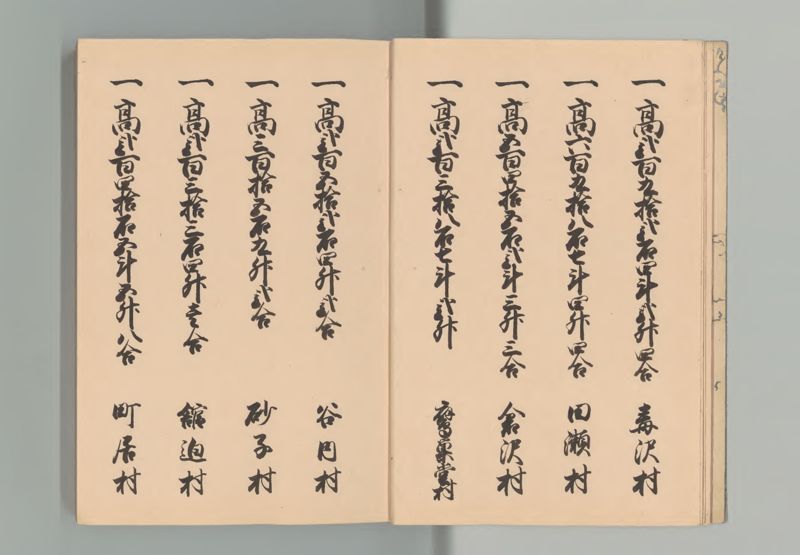 一 高弐百九拾弐石四斗弐升四合 毒沢村
一 高六百九拾八石七斗四升四合 田瀬村
一 高五百四拾五石弐斗三升三合 倉沢村
一 高弐百三拾八石七斗弐升 鷹巣堂村
一 高弐百五拾弐石四升弐合 谷内村
一 高三百拾五石九升弐合 砂子村
一 高弐百三拾三石四升壱合 舘迫村
一 高弐百四拾石五斗五升八合 町居村